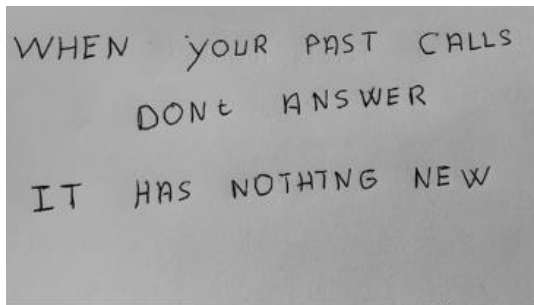 WHEN YOUR PAST CALLS
DONt ANSWER
IT HAS NOTHING NEW